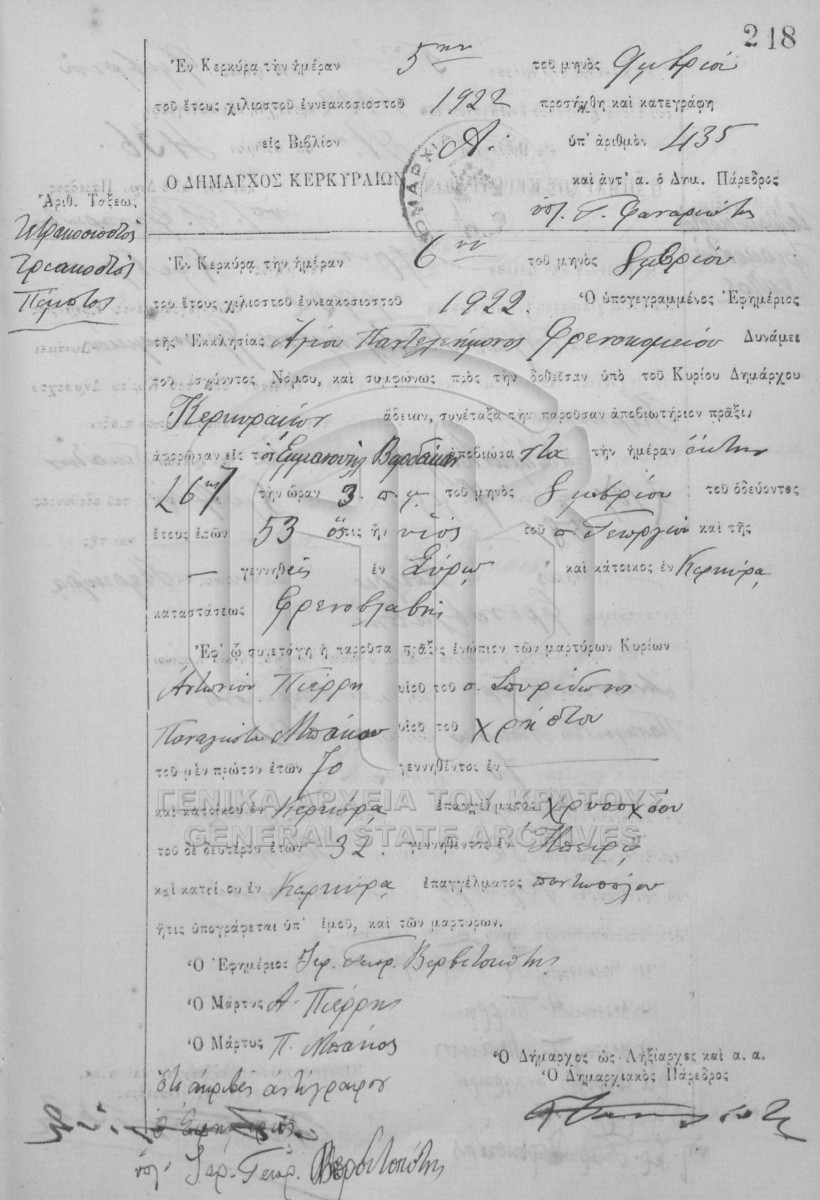 218
Ἐν Κερκύρᾳ τὴν ἡμέραν 5ην τοῦ μηνὸς 9μβρίου
τοῦ ἔτους χιλιοστοῦ ἐννεακοσιοστοῦ 1922 προσήχθη καὶ κατεγράφη
εἰς Βιβλίον Α. ὑπ' ἀριθμὸν 435
Ο ΔΗΜΑΡΧΟΣ ΚΕΡΚΥΡΑΙΩΝ καὶ ἀντ' α. ὁ Δημ. Πάρεδρος
Ἀριθ. Τάξεως
Τετρακοσιοστὸς
Τριακοστὸς
Πέμπτος
Ἐν Κερκύρᾳ τὴν ἡμέραν τοῦ μηνὸς 8μβρίου
τοῦ ἔτους χιλιοστοῦ ἐννεακοσιοστοῦ 1922. Ὁ ὑπογεγραμμένος Ἐφημέριος
τῆς Ἐκκλησίας Ἁγίου Παντελεήμονος Φρενοκομείου Δυνάμει
τοῦ ἰσχύοντος Νόμου, καὶ συμφώνως πρὸς τὴν δοθεῖσαν ὑπὸ τοῦ Κυρίου Δημάρχου
Κερκυραίων ἄδειαν, συνέταξα τὴν παροῦσαν ἀποβιωτήριον πρᾶξιν
ἀφορῶσαν εἰς τὸν Ἐμμανουὴλ ἀποβιώσαντα τὴν ἡμέραν
τὴν ὥραν 3 π.μ. τοῦ μηνὸς 8μβρίου τοῦ ὁδεύοντος
ἔτους ἐτῶν 53 ὅστις ἦν υἱὸς τοῦ π. Γεωργίου καὶ τῆς
— γεννηθεὶς ἐν Σύρῳ καὶ κάτοικος ἐν Κερκύρᾳ
καταστάσεως φρενοβλαβὴς
Ἐφ' ᾧ συνετάγη ἡ παροῦσα πρᾶξις ἐνώπιον τῶν μαρτύρων Κυρίων
Ἀντωνίου Πιέρρη υἱοῦ τοῦ π. Σπυρίδωνος
Παναγιώτου Μπάκου υἱοῦ τοῦ Χρήστου
τοῦ μὲν πρώτου ἐτῶν 70 γεννηθέντος ἐν —
καὶ κατοίκου ἐν Κερκύρᾳ ἐπαγγέλματος χρυσοχόου
τοῦ δὲ δευτέρου ἐτῶν 32. γεννηθέντος ἐν Ἠπείρῳ
καὶ κατοίκου ἐν Κερκύρᾳ ἐπαγγέλματος παντοπώλου
ἥτις ὑπογράφεται ὑπ' ἐμοῦ, καὶ τῶν μαρτύρων.
Ὁ Ἐφημέριος Ἱερ. Γεώρ. Βερβιτσιώτης
Ὁ Μάρτυς Α. Πιέρρης
Ὁ Μάρτυς Π. Μπάκος
Ὅτι ἀκριβὲς ἀντίγραφον
Ὁ Δήμαρχος ὡς Ληξίαρχος καὶ α. α.
Ὁ Δημαρχιακὸς Πάρεδρος
ὁ Ἐφημέριος
ὑπ. Ἱερ. Γεώρ. Βερβιτσιώτης
ΓΕΝΙΚΑ ΑΡΧΕΙΑ ΤΟΥ ΚΡΑΤΟΥΣ
GENERAL STATE ARCHIVES